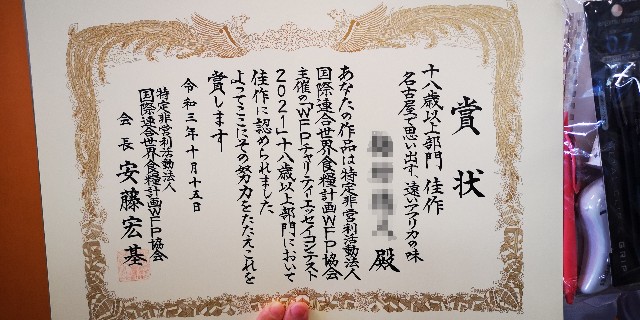 賞状
十八歳以上部門 佳作
名古屋で思い出す、遠いアフリカの味
殿
あなたの作品は特定非営利活動法人
国際連合世界食糧計画WFP協会
主催の「WFPチャリティエッセイコンテスト
2021」十八歳以上部門において
佳作に認められました
よってここにその努力をたたえこれを
賞します
令和三年十月十五日
特定非営利活動法人
国際連合世界食糧計画WFP協会
会長 安藤宏基
GRIP